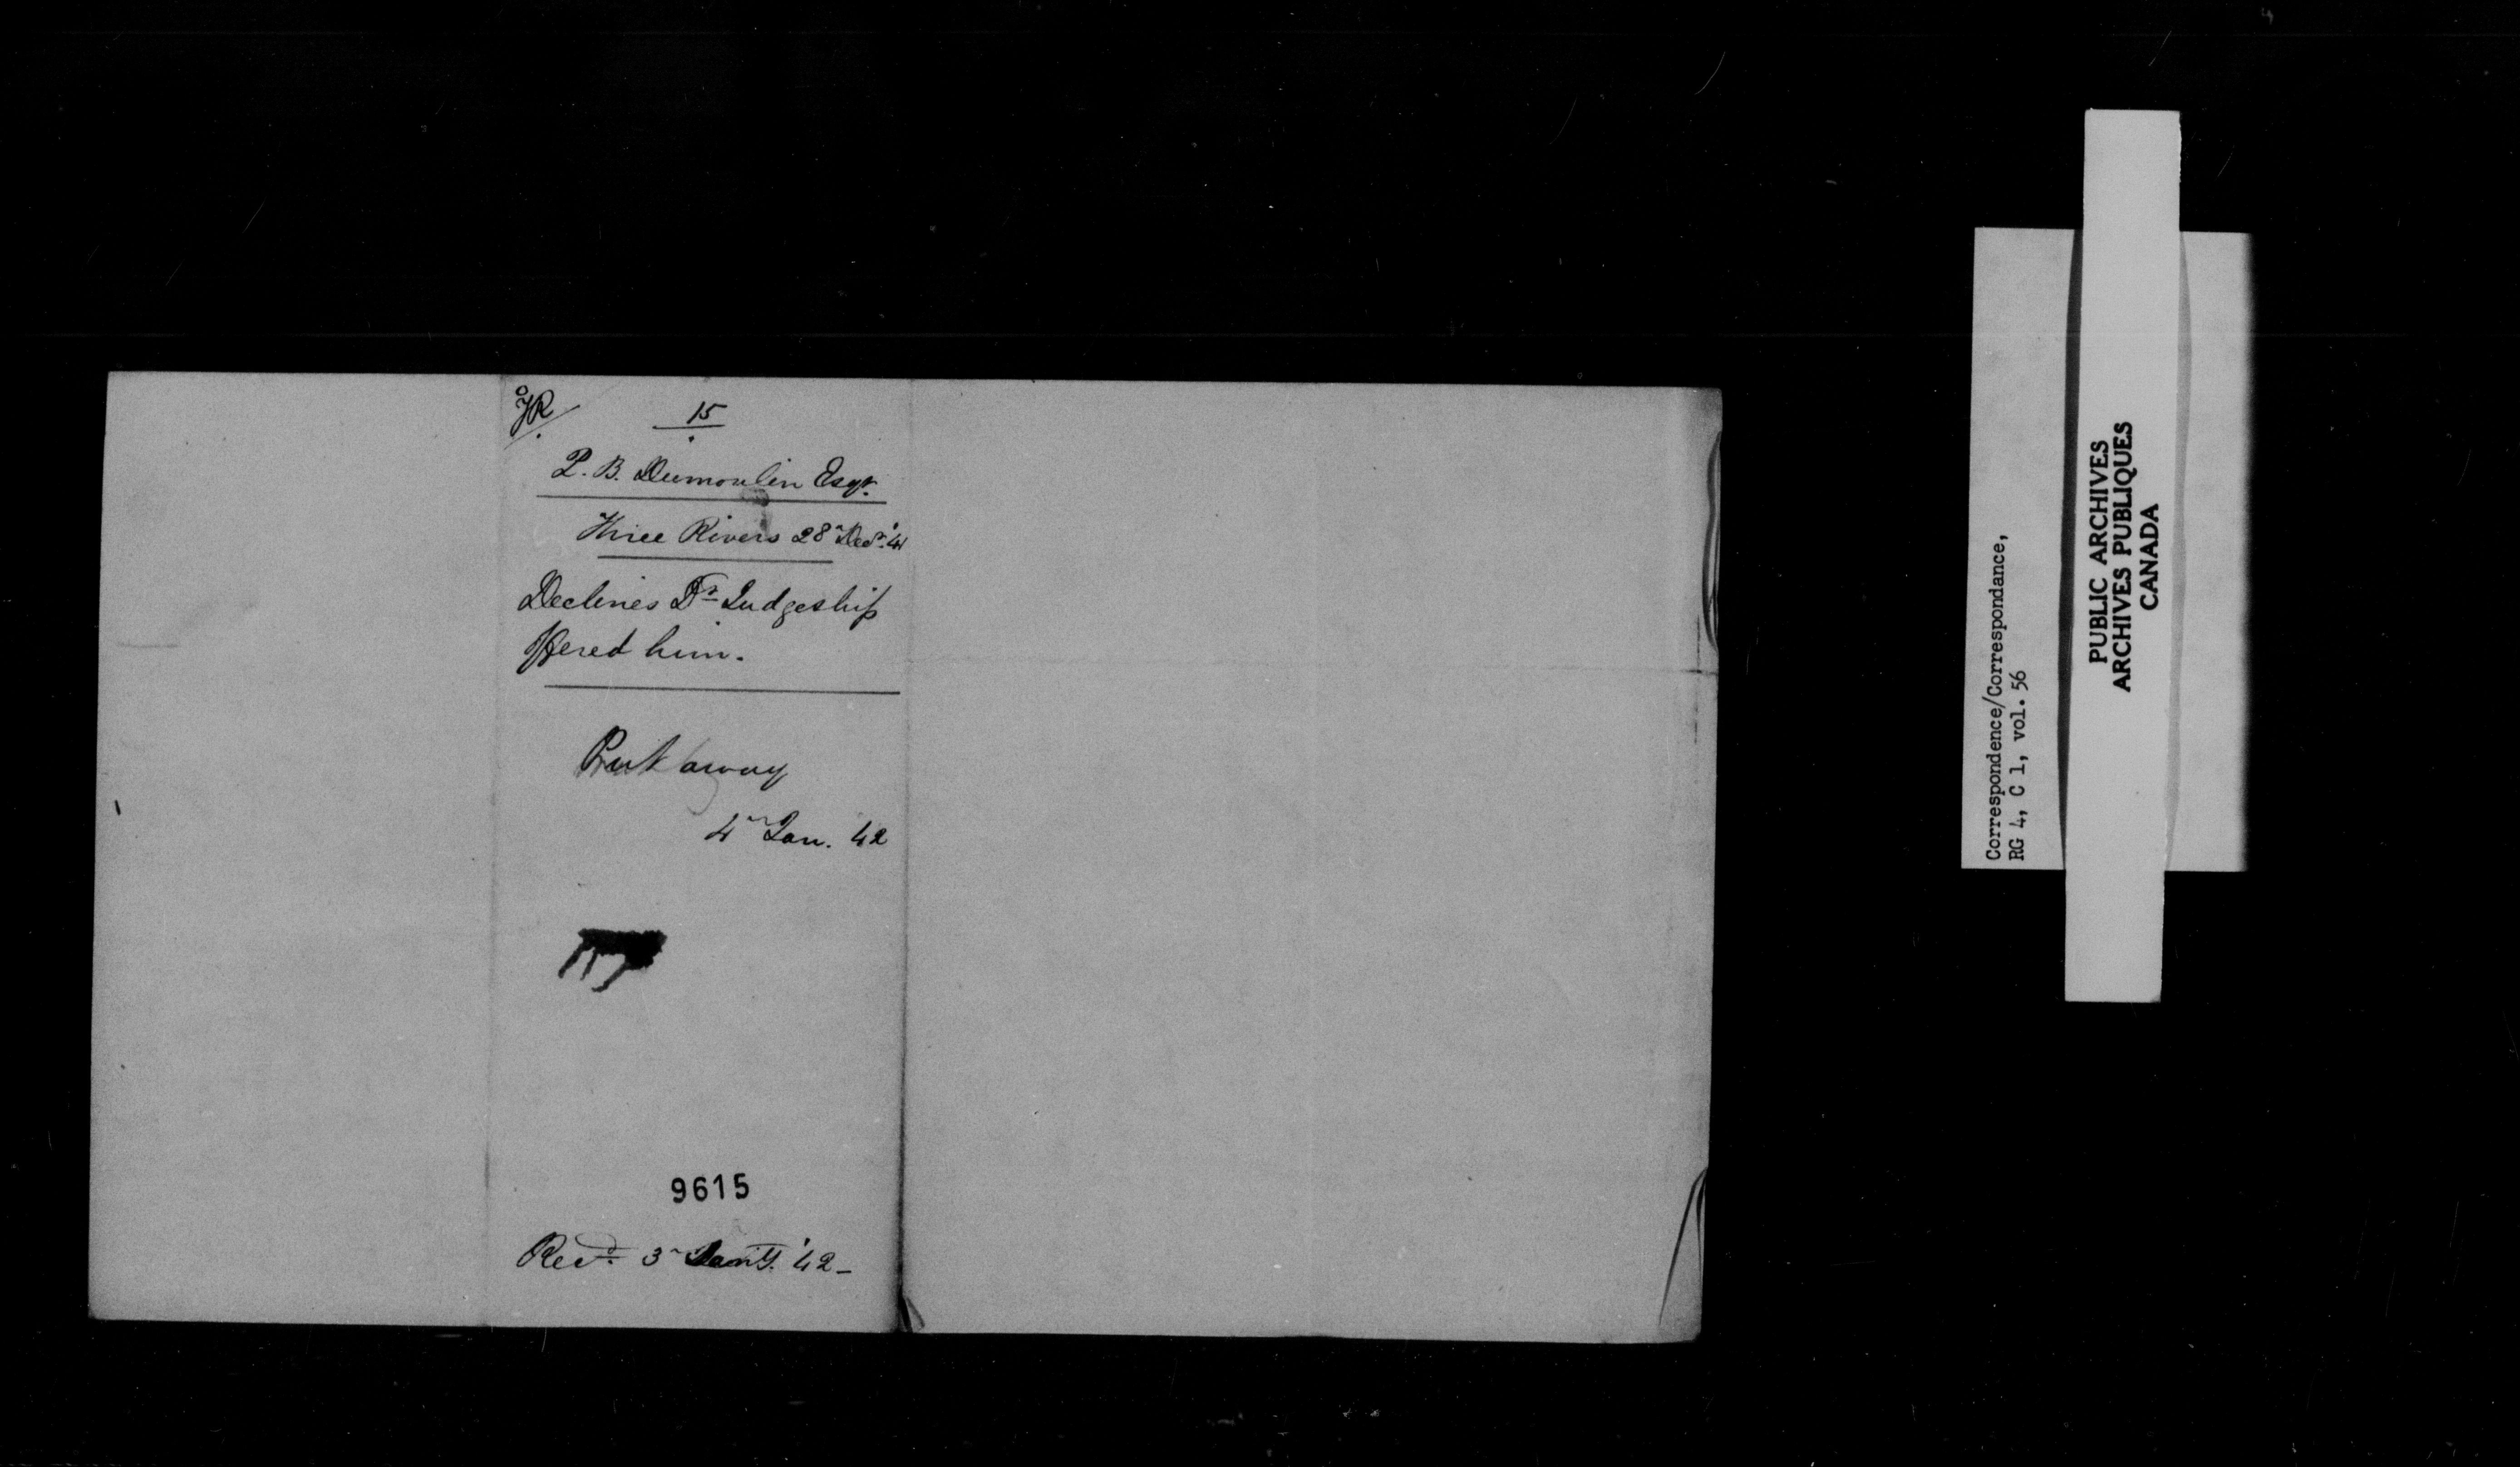 15
P. B. Dumoulin Esqr.
Three Rivers 28 Decr. '41
Declines Dt Judgeship
offered him.
Put away
4 Jan. 42
9615
Recd. 3 Jany. '42-
Correspondence/Correspondance,
RG 4, C 1, vol. 56
PUBLIC ARCHIVES
ARCHIVES PUBLIQUES
CANADA